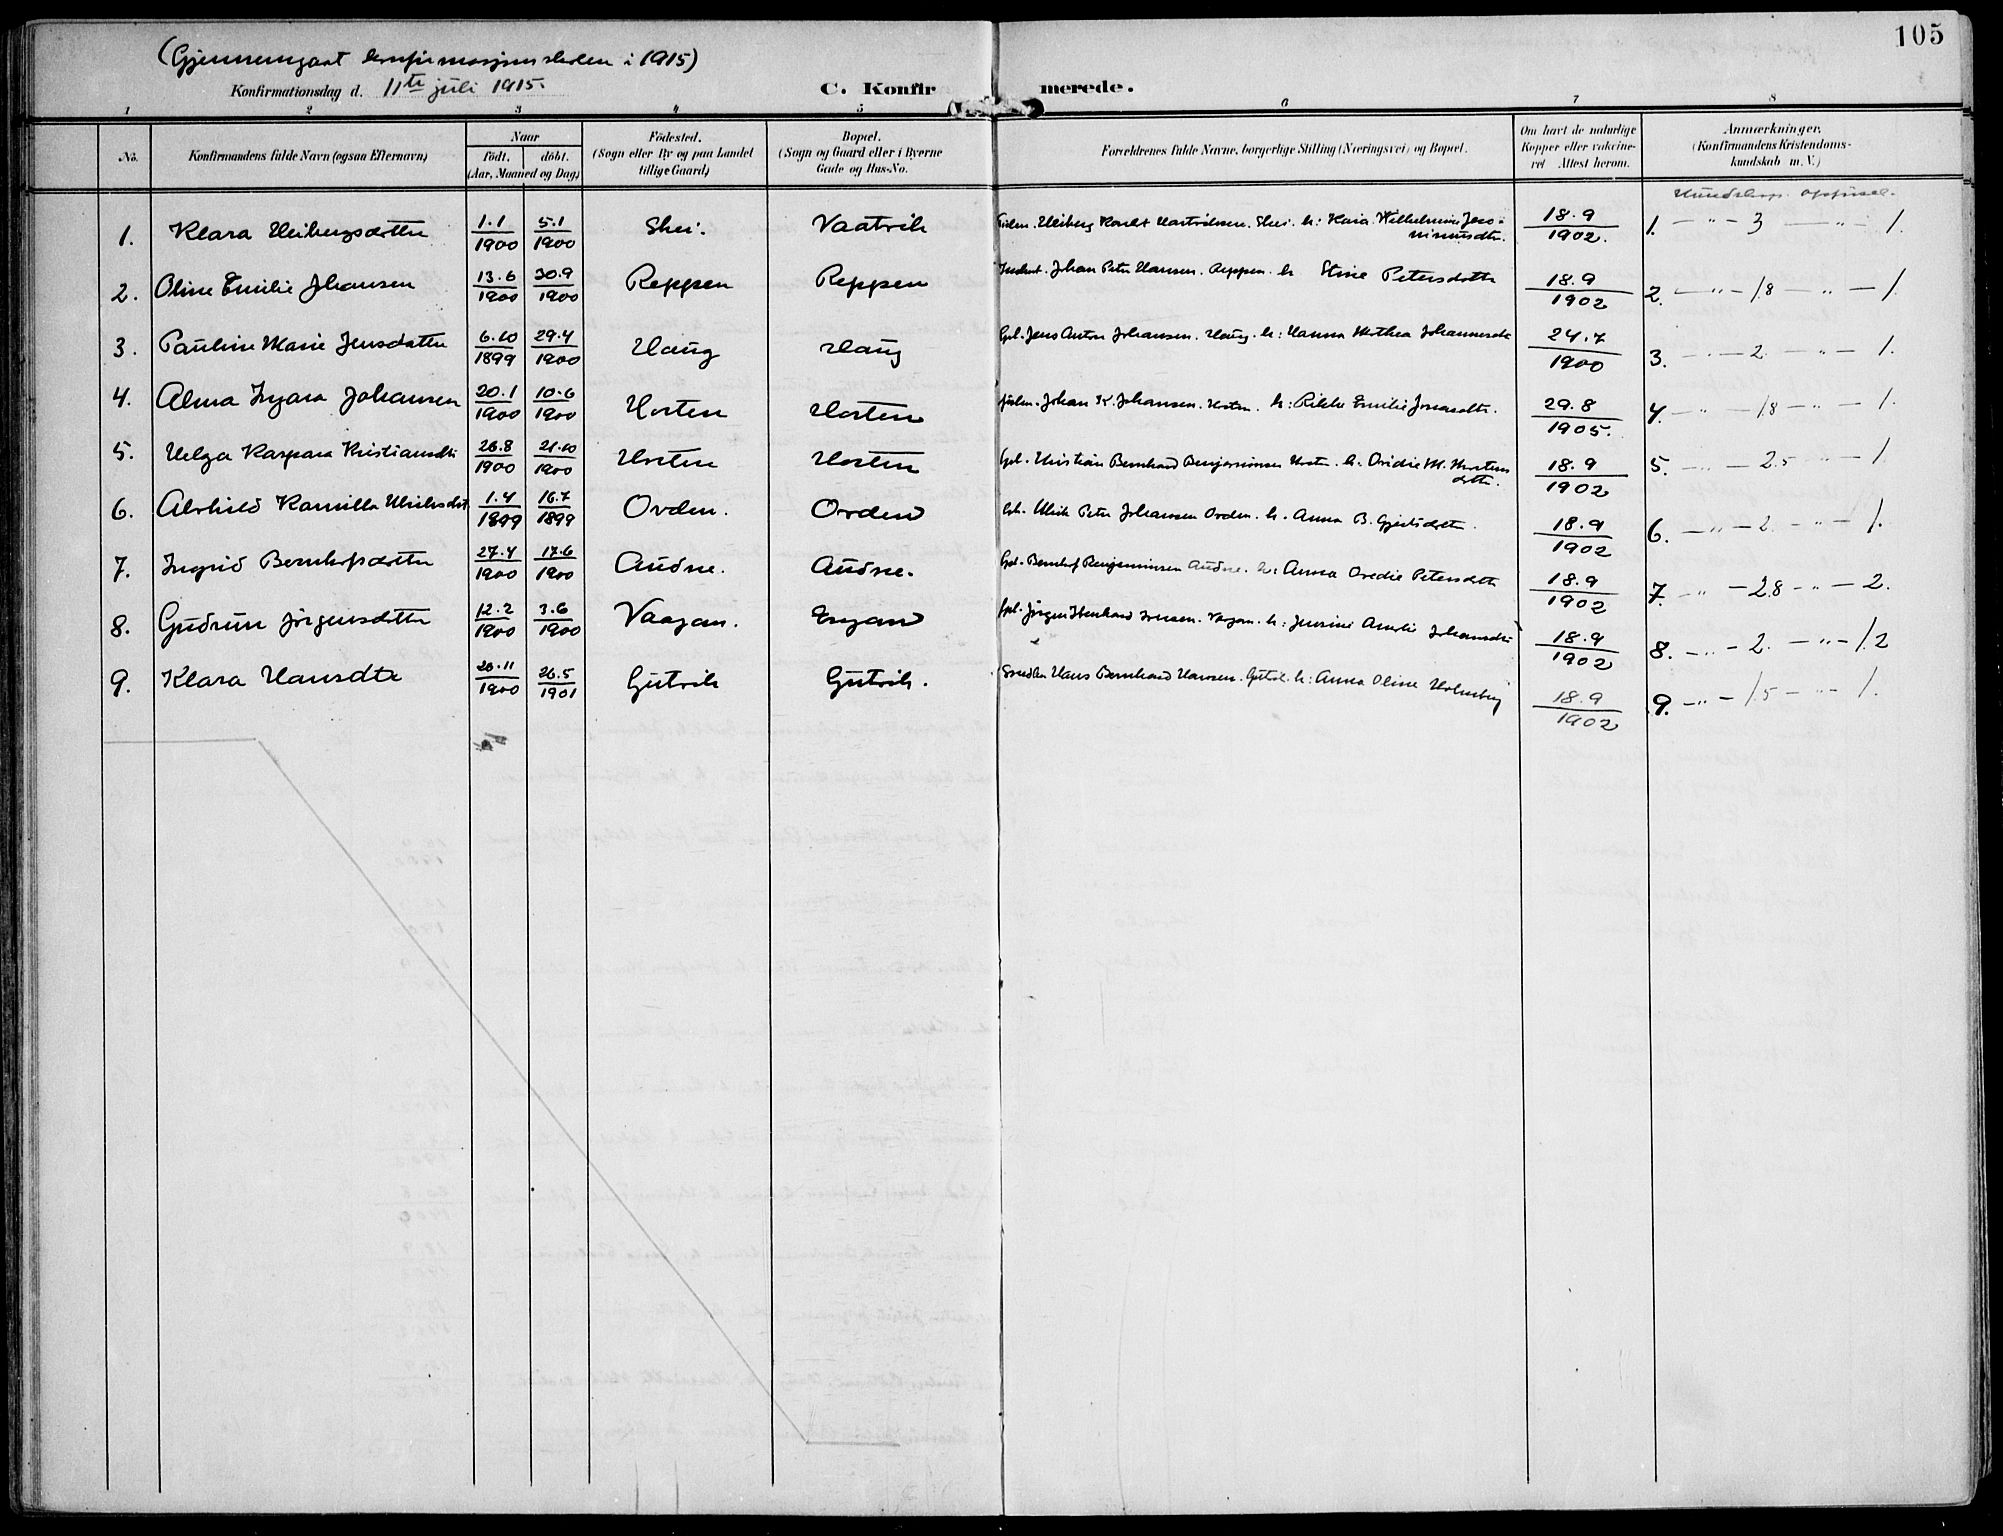 105
(Gjennemgaat konfirmasjonsskolen i 1915)
Konfirmationsdag d. 11te juli 1915.
C. Konfirmerede.
1 2 3 4 5 6 7 8
No.
Konfirmandens fulde Navn (ogsaa Efternavn)
Naar
födt. döbt.
(Aar, Maaned og Dag)
Födested.
(Sogn eller By og paa Landet
tillige Gaard)
Bopæl.
(Sogn og Gaard eller i Byerne
Gade og Hus-No.
Forældrenes fulde Navne, borgerlige Stilling (Næringsvei) og Bopæl.
Om havt de naturlige
Kopper eller vakcine-
ret Attest herom.
Anmærkninger.
(Konfirmandens Kristendoms-
kundskab m. V.)
Kundskap. Oppførsel.
1. Klara Heibergsdatter 1.1 1900 5.1 1900 Skei. Vaatvik Heiberg 18.9 1902. 1. — „ — 3 — „ — 1.
2. Oline Emilie Johansen 13.6 1900 30.9 1900 Reppen Reppen Johan Peter Hansen. Reppen. h. Stine Petersdatter 18.9 1902 2. — „ — 1.8 — „ — 1.
3. Pauline Marie Jensdatter 6.10 1899 29.4 1900 Haug Haug Gbr. Jens Anton Johansen. Haug. h: Hanna 24.7 1900 3. — „ — 2. — „ — 1.
4. Alma Johansen 20.1 1900 10.6 1900 Horten Horten Johan K. Johansen. Horten. h: Rikke Emilie 29.8 1905. 4. — „ — 1.8 — „ — 1.
5. Helga Kaspara Kristiansdtr 26.8 1900 21.10 1900 Horten Horten Kristian Bernhard Benjaminsen Horten. h: 18.9 1902 5. — „ — 2.5 — „ — 1
6. Alvhild Kamilla Ulriksdat 1.4 1899 16.7 1899 Ovden. Ovden Ulrik Peter Johansen Ovden. h. Anna B. 18.9 1902 6. — „ — 2. — „ — 1.
7. Ingrid Bernhofsdatter 27.4 1900 17.6 1900 Audne. Audne. Bernhof Benjaminsen Audne. h: Anna Ovedie Petersdatter 18.9 1902 7. — „ — 2.8 — „ — 2.
8. Gudrun Jörgensdatter 12.2 1900 3.6 1900 Vaagan. Engan Jörgen Vagan. h: 18.9 1902 8. — „ — 2. — „ — 1.2
9. Klara Hansdtr 26.11 1900 26.5 1901 Gutvik Gutvik. Hans Bernhard Hansen. Gutvik h: Anna Oline Holmberg 18.9 1902 9. — „ — 1.5 — „ — 1.